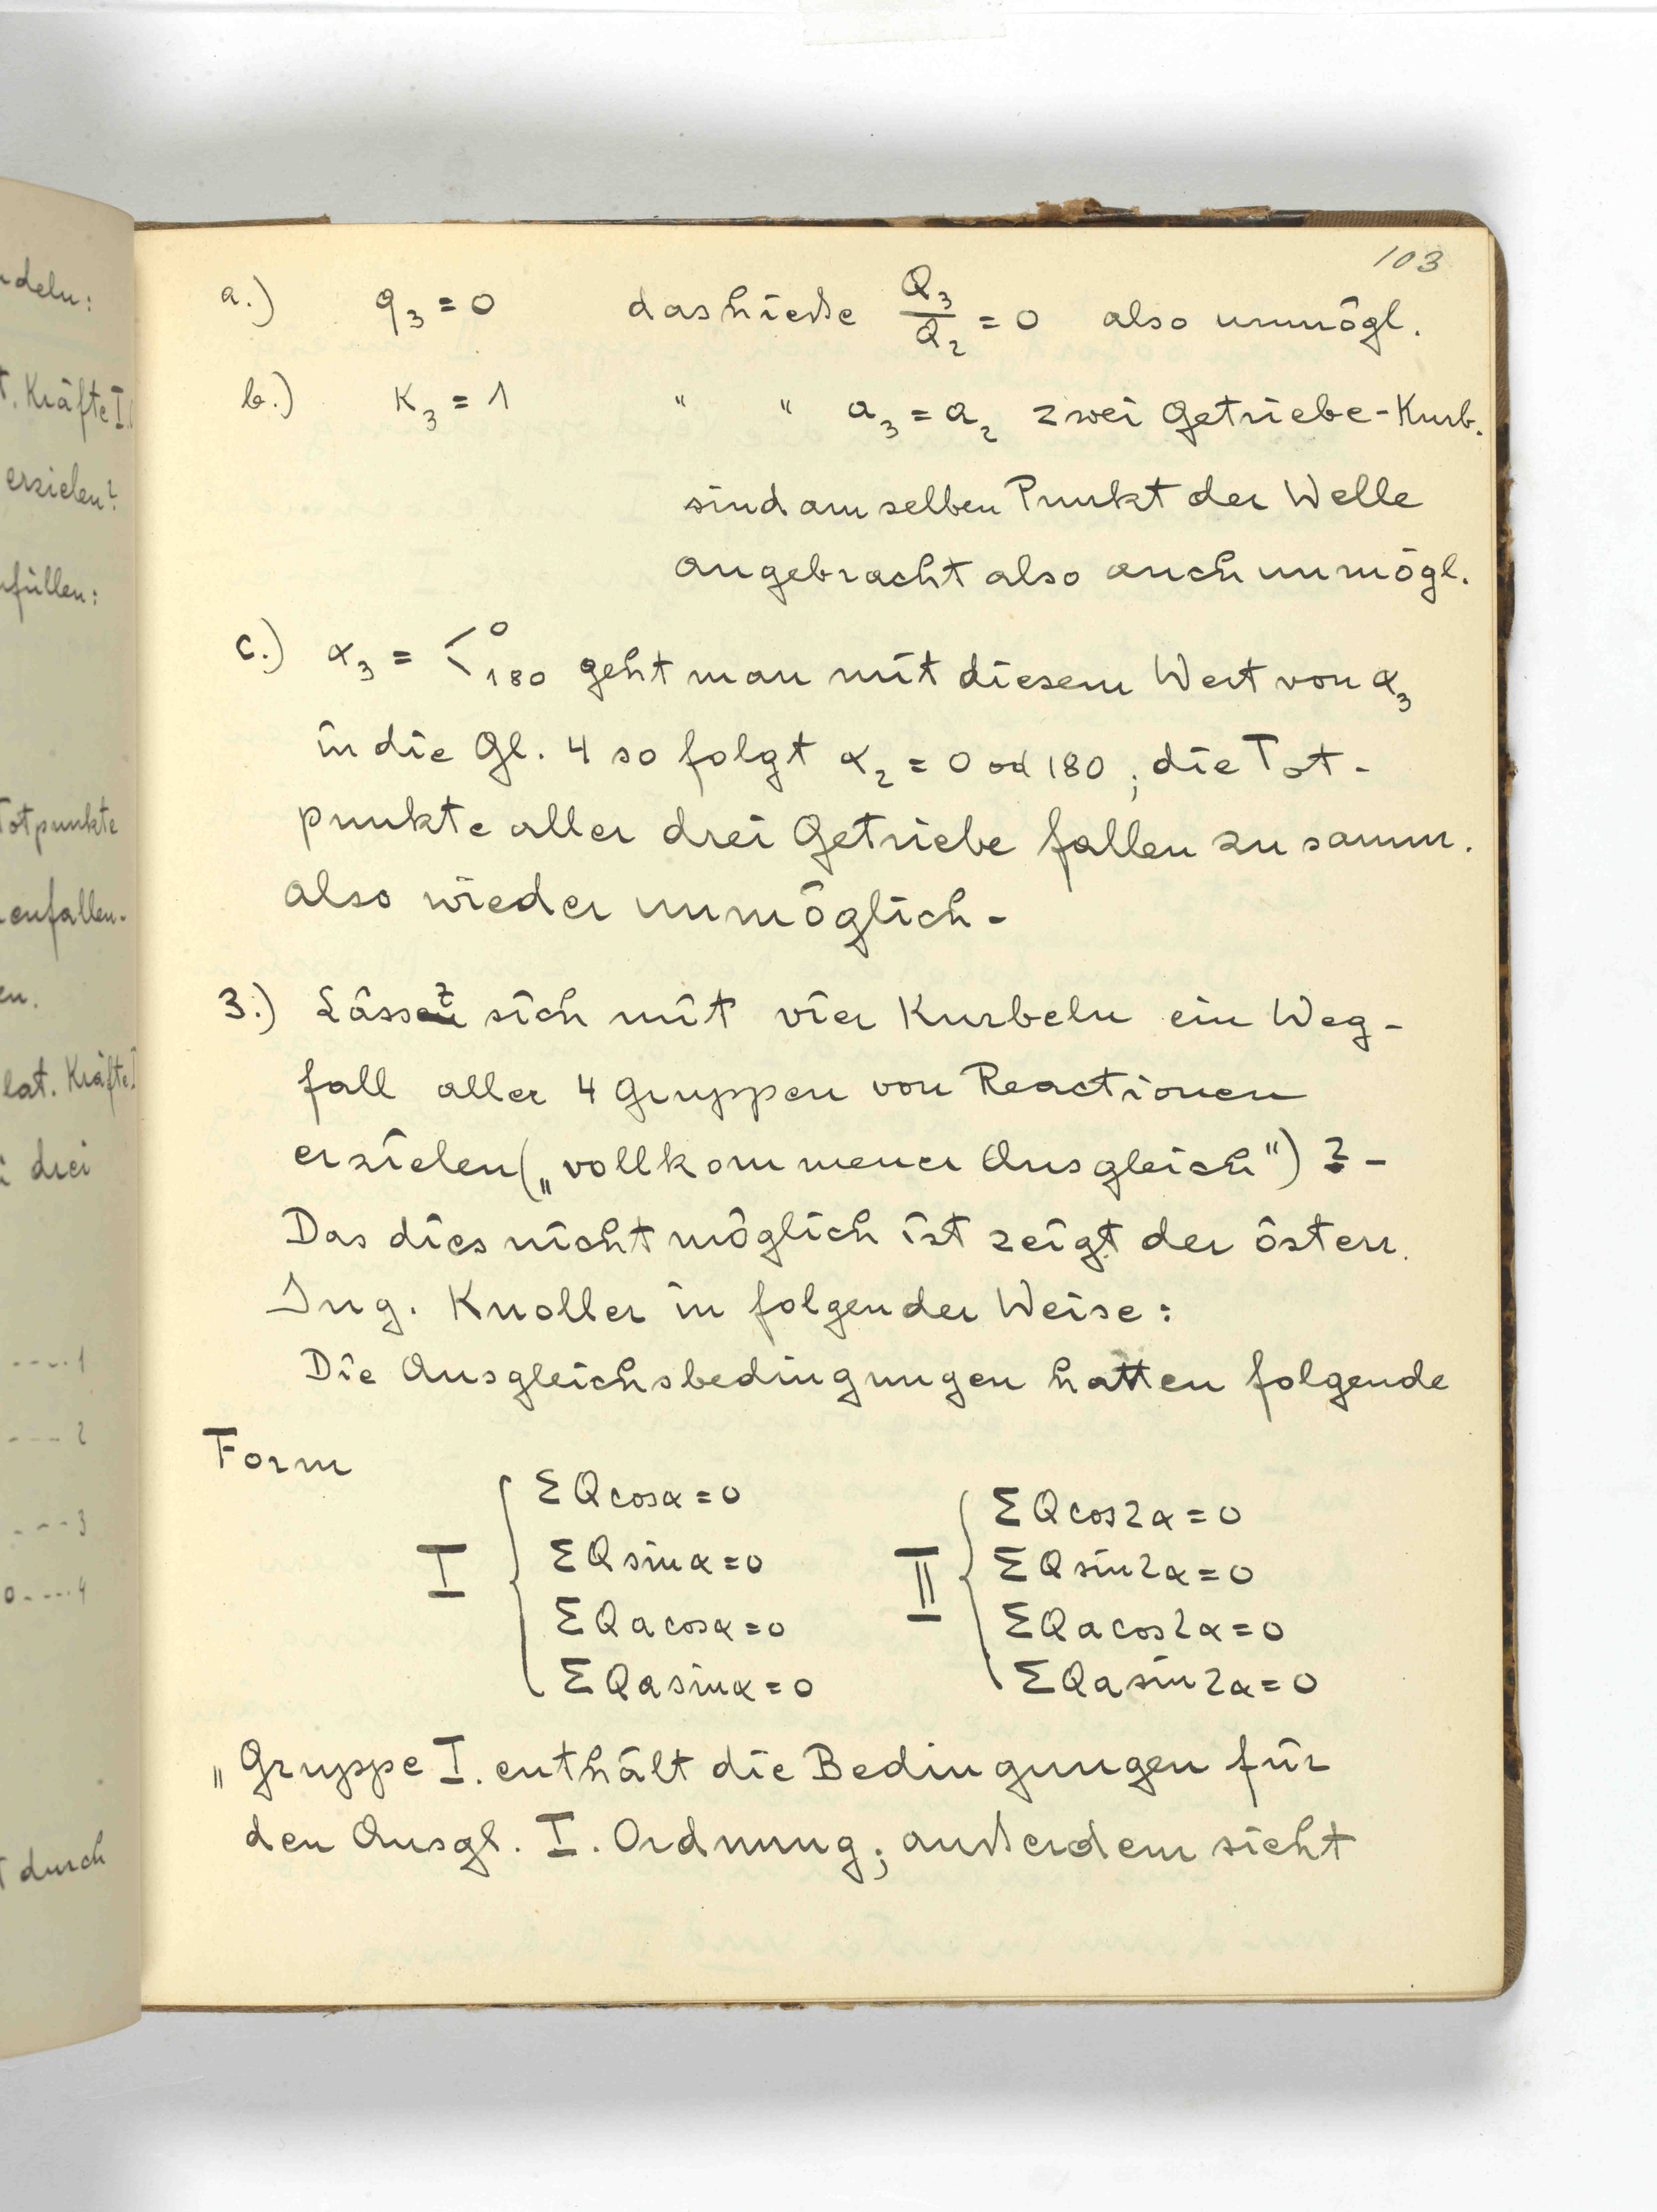 ndeln:
t. Kräfte I.
erzielen?
rfüllen:
Totpunkte
enfallen.
en.
lat. Kräfte I
i drei
----1
----2
----3
0----4
t durch
103
a.) q₃ = 0 das hieße Q₃/Q₂ = 0 also unmögl.
b.) K₃ = 1 " " a₃ = a₂ zwei Getriebe-Kurb.
sind am selben Punkt der Welle
angebracht also auch unmögl.
c.) α₃ = < 0 180 geht man mit diesem Wert von α₃
in die Gl. 4 so folgt α₂ = 0 od 180 ; die Tot-
punkte aller drei Getriebe fallen zusamm.
also wieder unmöglich -
3.) Lässt sich mit vier Kurbeln ein Weg-
fall aller 4 Gruppen von Reactionen
erzielen („vollkommener Ausgleich") ? -
Das dies nicht möglich ist zeigt der österr.
Ing. Knoller in folgender Weise:
Die Ausgleichsbedingungen hatten folgende
Form
I { ΣQcosα=0 II { ΣQcos2α=0
ΣQsinα=0 ΣQsin2α=0
ΣQacosα=0 ΣQacos2α=0
ΣQasinα=0 ΣQasin2α=0
„Gruppe I. enthält die Bedingungen für
den Ausgl. I. Ordnung; außerdem sieht